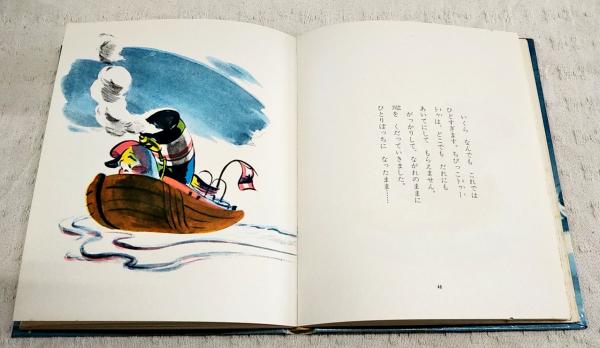 いくら なんでも これでは
ひどすぎます。ちびっこトゥー
トゥは、どこでも だれにも
あいてにして もらえません。
がっかりして、ながれのままに
川を くだっていきました。
ひとりぼっちに なったまま……
48